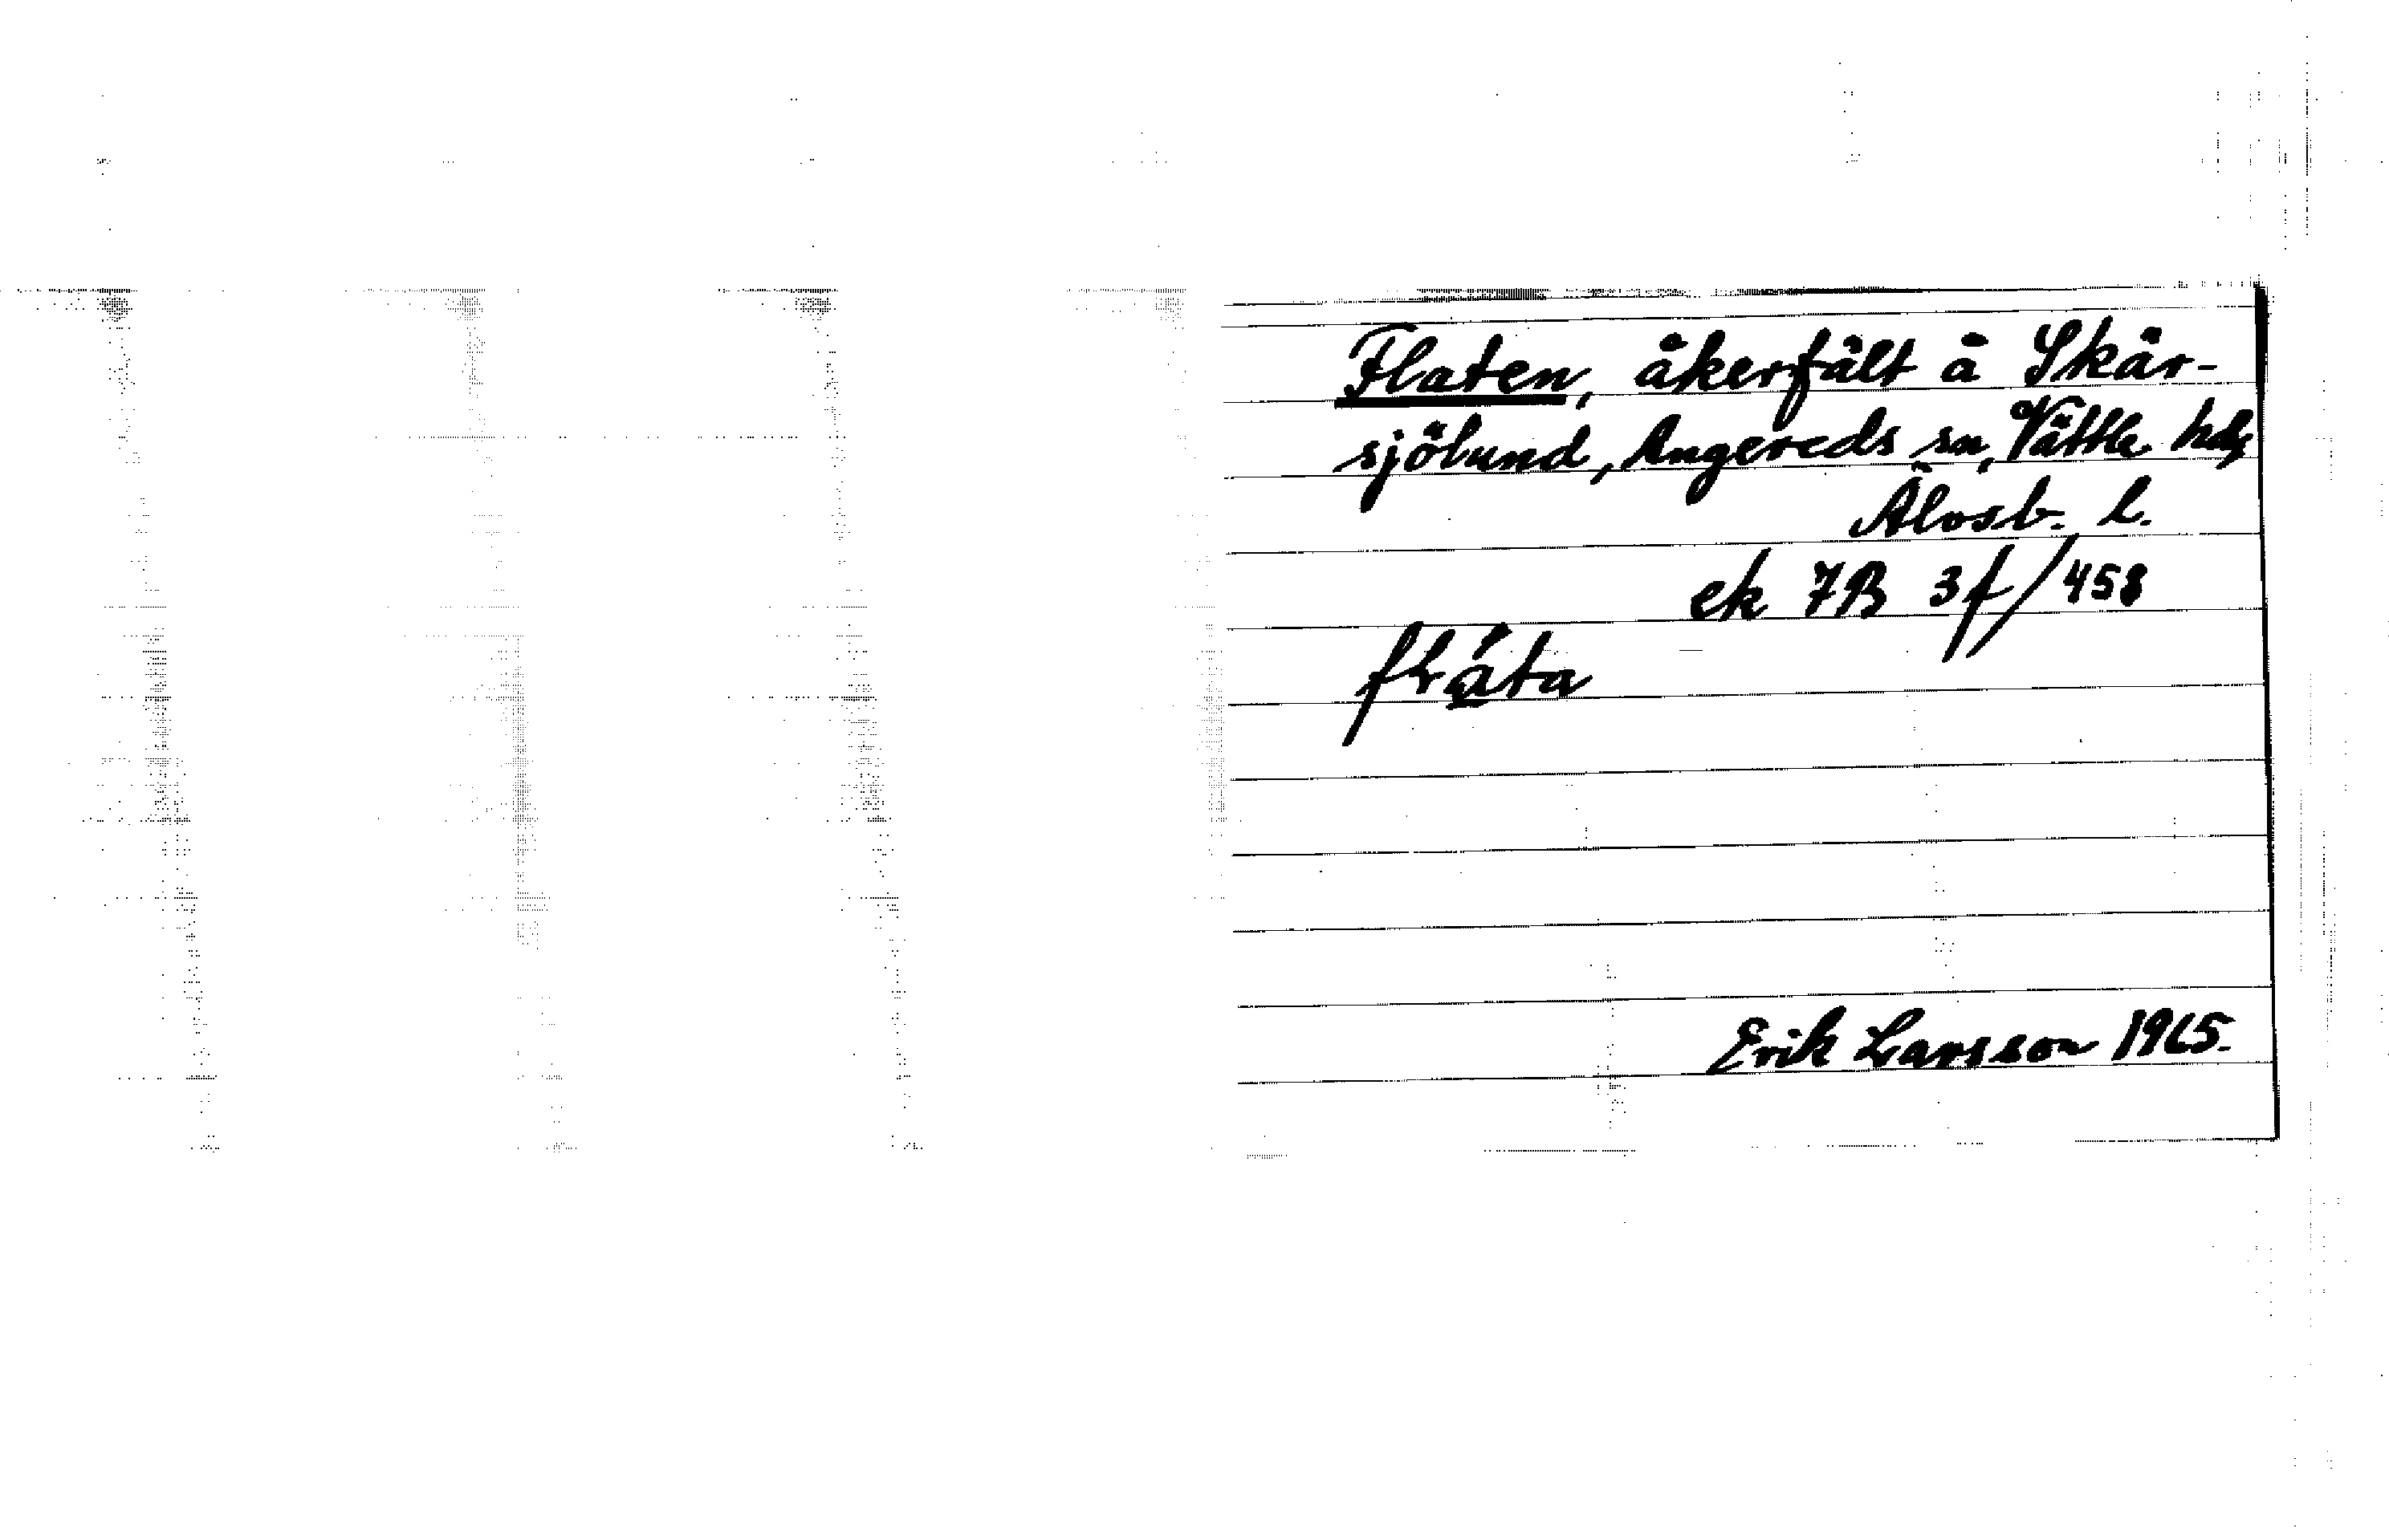 Flaten, åkerfält å Skär-
sjölund, Angereds sn, Vättle hd,
Älvsb. l.
ek 7B 3f/458
flá̱ta
Erik Larsson 1965.